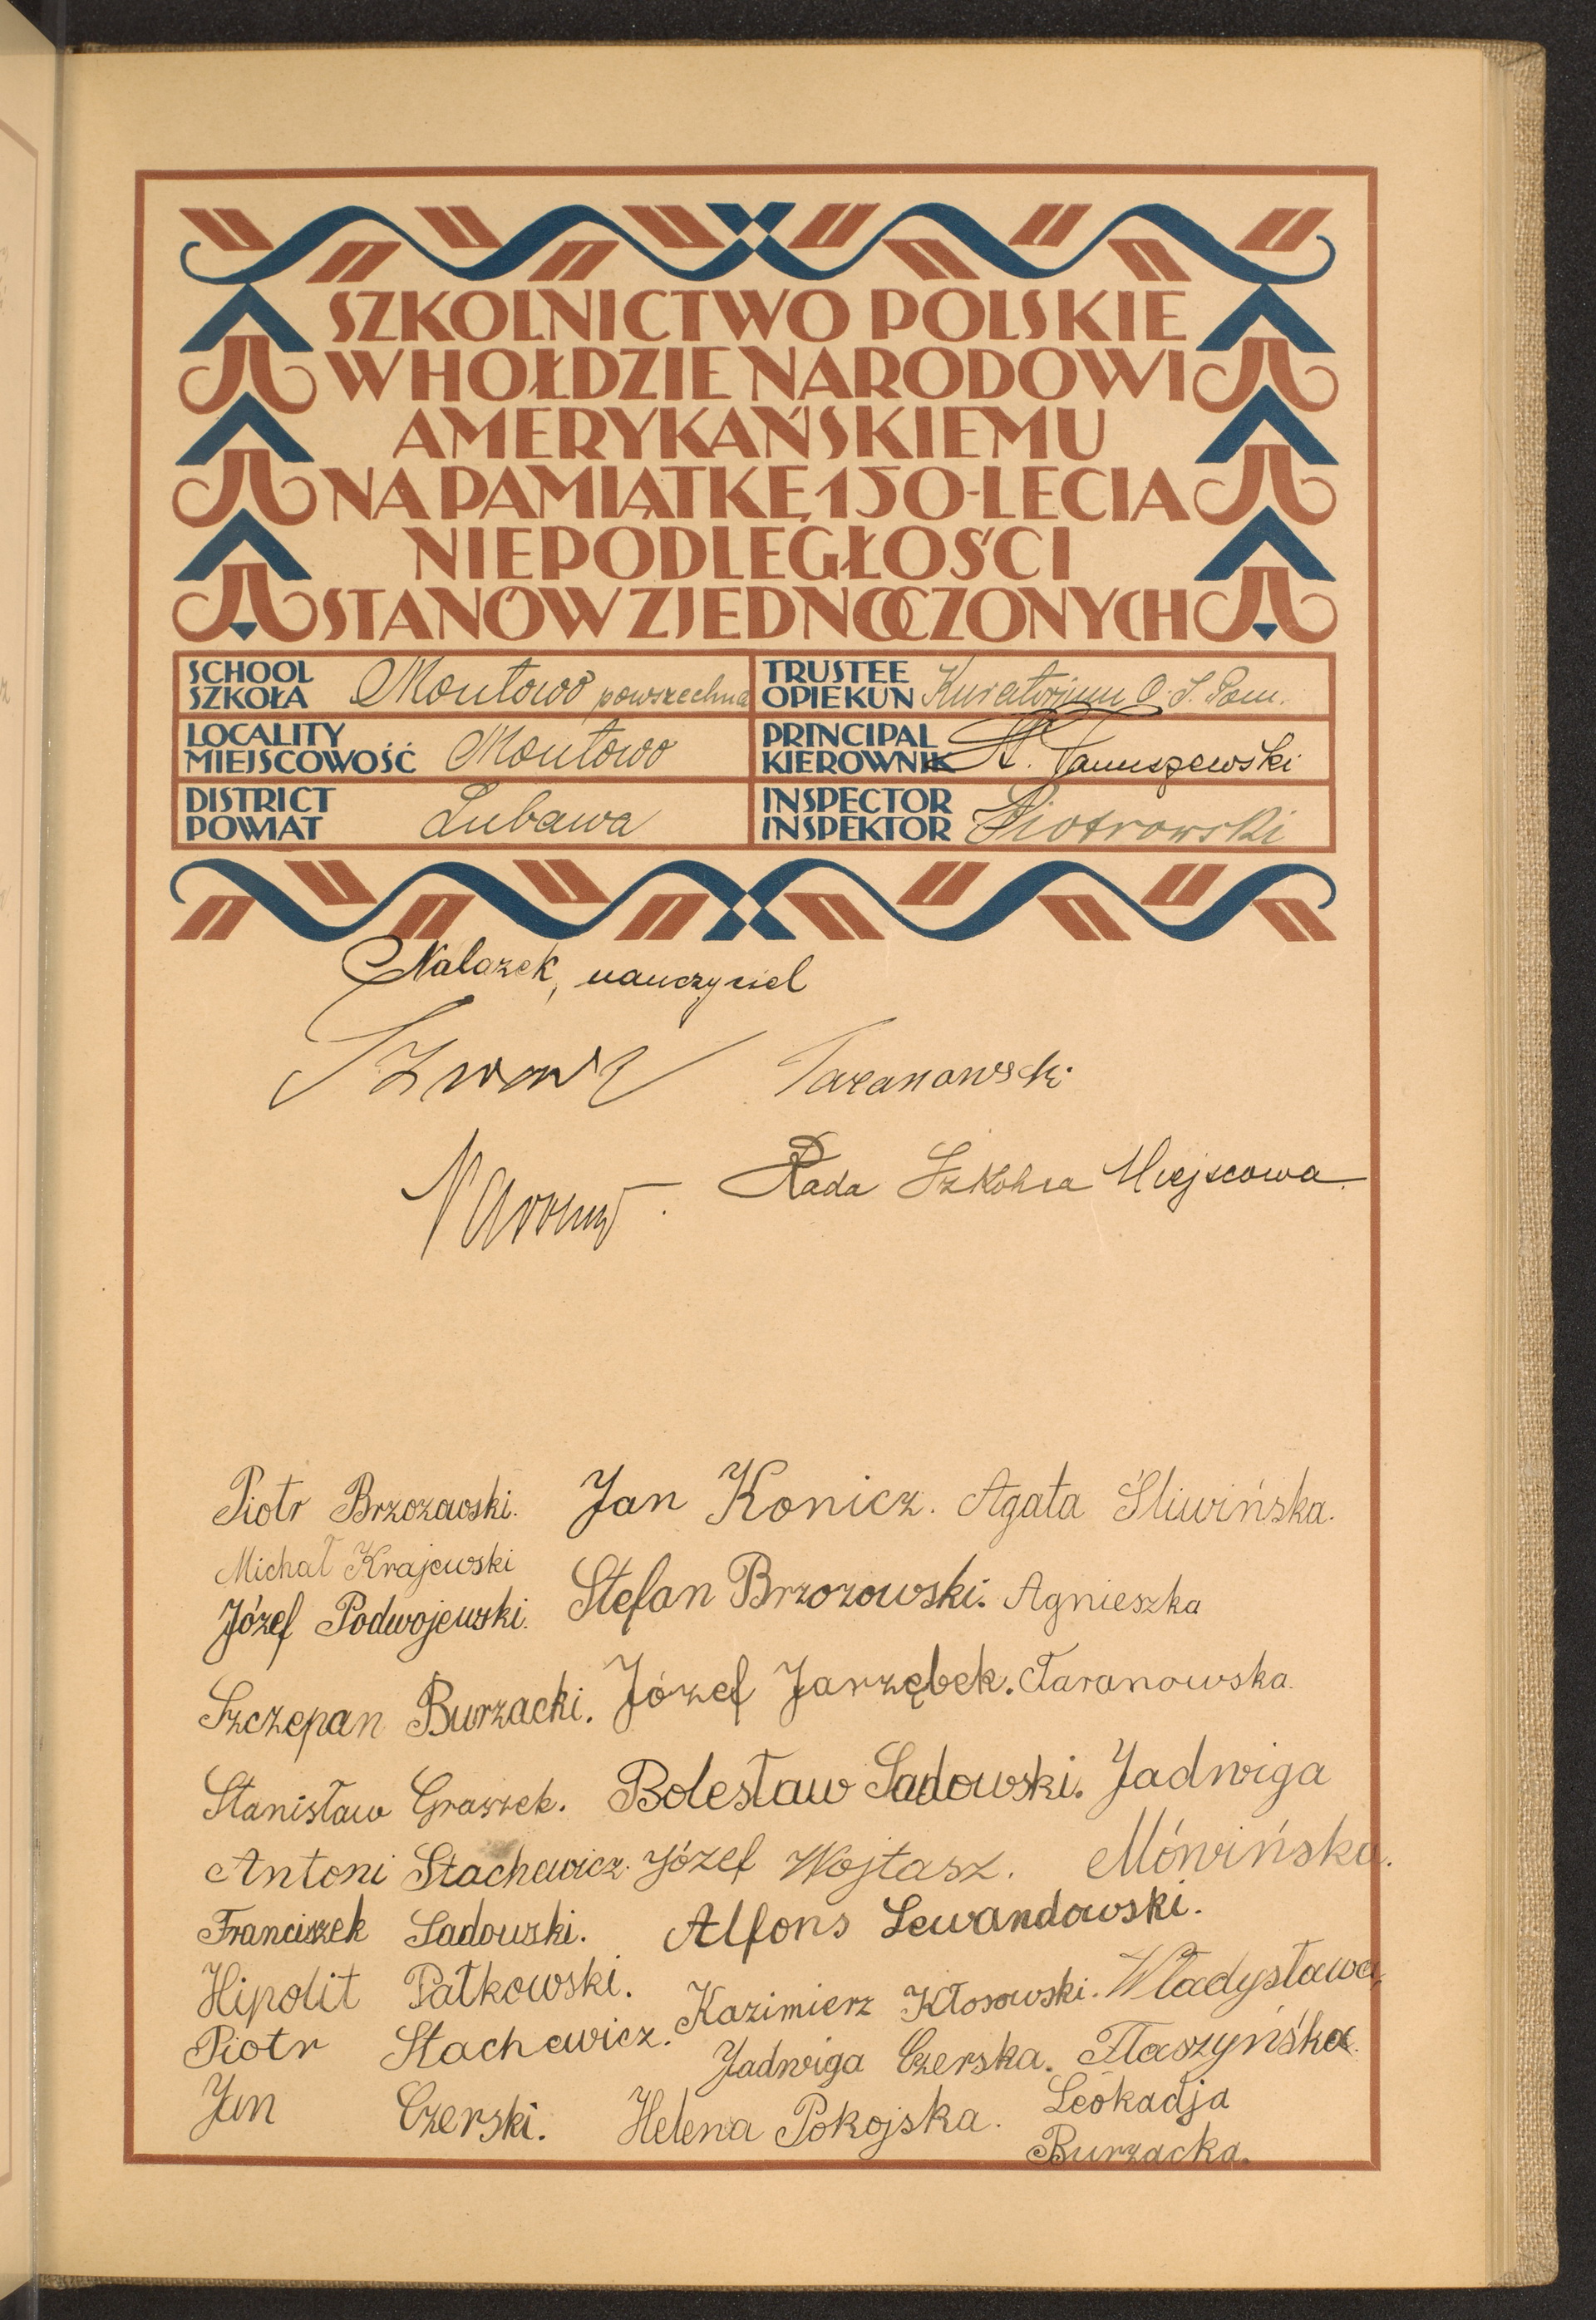 SZKOLNICTWO POLSKIE
W HOŁDZIE NARODOWI
AMERYKAŃSKIEMU
NA PAMIĄTKĘ 150-LECIA
NIEPODLEGŁOŚCI
STANÓW ZJEDNOCZONYCH
SCHOOL
SZKOŁA Montowo powszechna
TRUSTEE
OPIEKUN Kuratorjum O. S. Pom.
LOCALITY
MIEJSCOWOŚĆ Montowo
PRINCIPAL
KIEROWNIK Januszewski
DISTRICT
POWIAT Lubawa
INSPECTOR
INSPEKTOR Piotrowski
Nalazek, nauczyciel
Taranowski
Rada Szkolna Miejscowa
Piotr Brzozowski. Jan Konicz. Agata Śliwińska.
Michał Krajewski
Józef Podwojewski. Stefan Brzozowski. Agnieszka
Szczepan Burzacki. Józef Jarzębek. Taranowska.
Stanisław Graszek. Bolesław Sadowski. Jadwiga
Antoni Stachewicz. Józef Wojtasz. Mówińska.
Franciszek Sadowski. Alfons Lewandowski.
Hipolit Patkowski. Kazimierz Kłosowski. Władysława
Piotr Stachewicz. Jadwiga Czerska. Tłaszyńska.
Jan Czerski. Helena Pokojska. Leokadja
Burzacka.